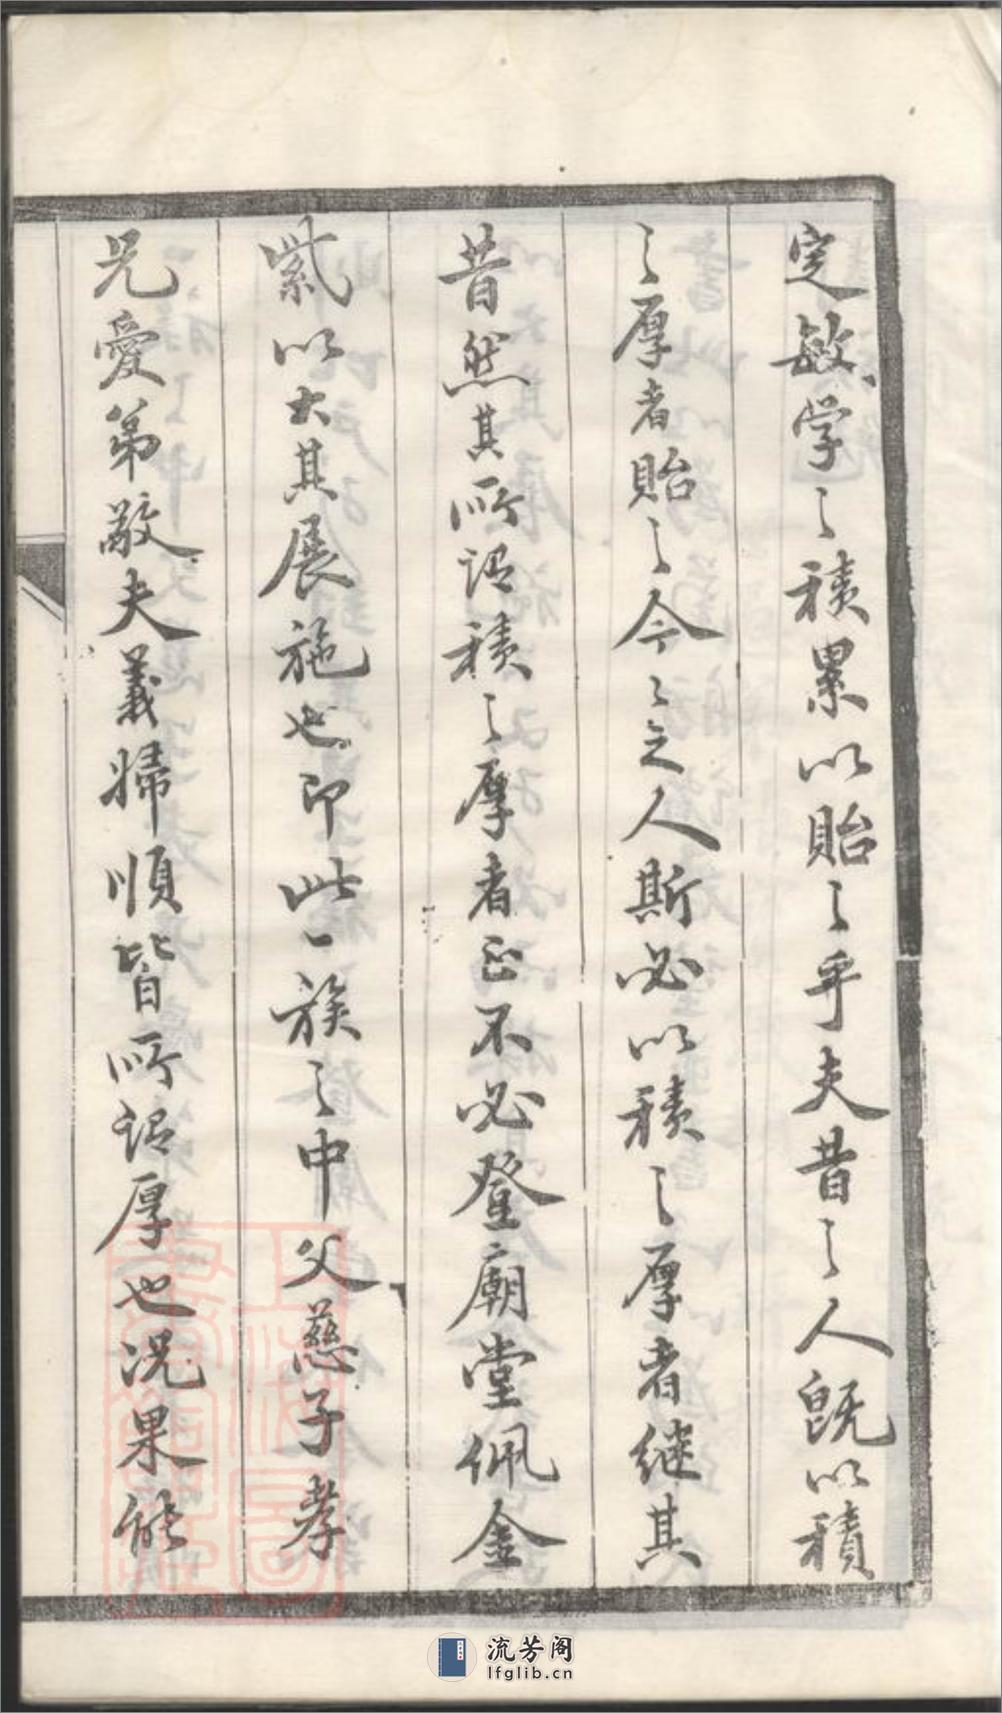 定敏学之積累以貽之乎夫昔之人既以積
之厚者貽之今之人斯必以積之厚者继其
昔然其所謂積之厚者正不必登廟堂佩金
紫以大其展施也即此一族之中父慈子孝
兄愛弟敬夫義婦順皆所謂厚也况果能
流芳阁
lfglib.cn